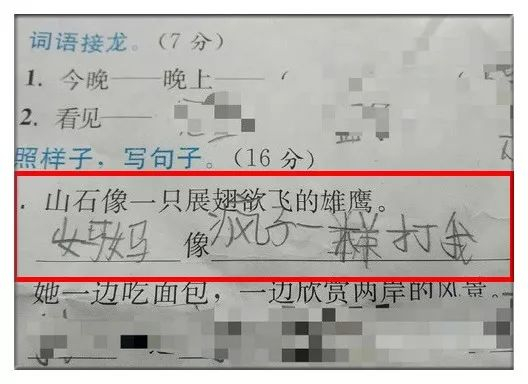 词语接龙。（7 分）
1. 今晚——晚上——（
2. 看见——
照样子，写句子。（16 分）
. 山石像一只展翅欲飞的雄鹰。
妈妈 像 疯子一样打我
她一边吃面包，一边欣赏两岸的风景。